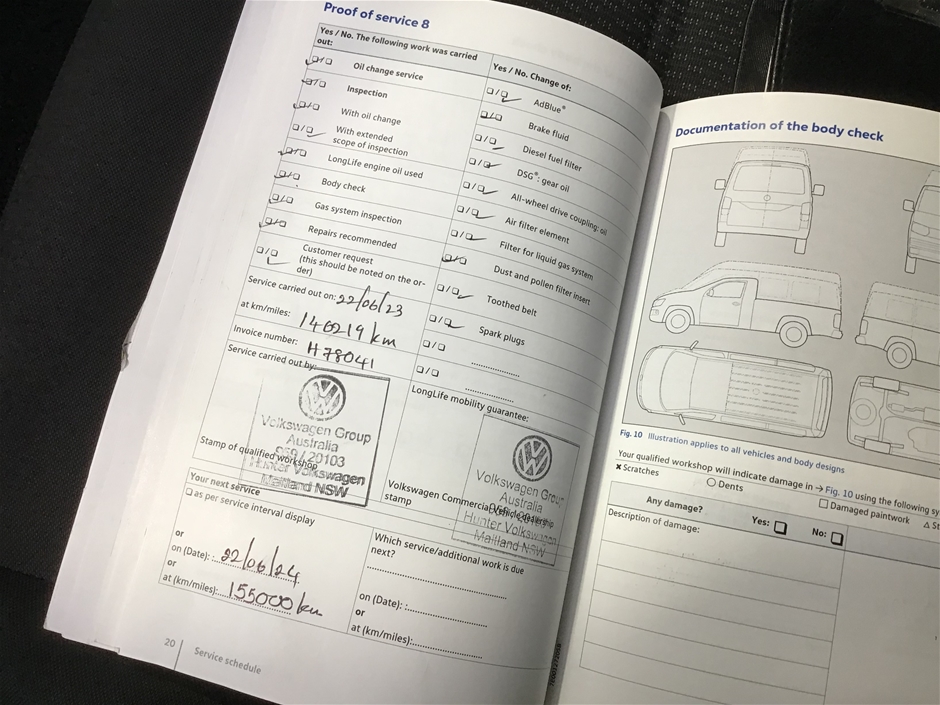 Proof of service 8
Yes / No. The following work was carried out:
Oil change service
Inspection
With oil change
With extended scope of inspection
LongLife engine oil used
Body check
Gas system inspection
Repairs recommended
Customer request
(this should be noted on the or-
der)
Service carried out on: 22/06/23
at km/miles: 140219 km
Invoice number: H78041
Service carried out by:
Volkswagen Group
Australia
20103
Hunter Volkswagen
Maitland NSW
Stamp of qualified workshop
Yes / No. Change of:
AdBlue®
Brake fluid
Diesel fuel filter
DSG®: gear oil
All-wheel drive coupling: oil
Air filter element
Filter for liquid gas system
Dust and pollen filter insert
Toothed belt
Spark plugs
LongLife mobility guarantee:
Volkswagen Group
Australia
Hunter Volkswagen
Maitland NSW
Volkswagen Commercial Vehicle dealership
stamp
Your next service
as per service interval display
or
on (Date): 22/06/24
or
at (km/miles): 155000 km
Which service/additional work is due
next?
on (Date):
or
at (km/miles):
20 Service schedule
Documentation of the body check
Fig. 10 Illustration applies to all vehicles and body designs
Your qualified workshop will indicate damage in → Fig. 10 using the following sy
× Scratches
○ Dents
□ Damaged paintwork
△ St
Any damage? Yes: No:
Description of damage: